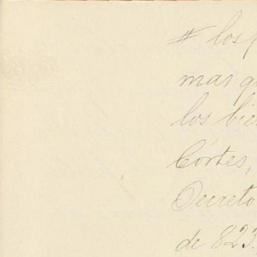 # los
mas
los bie
Cortes,
Decreto
de 823.